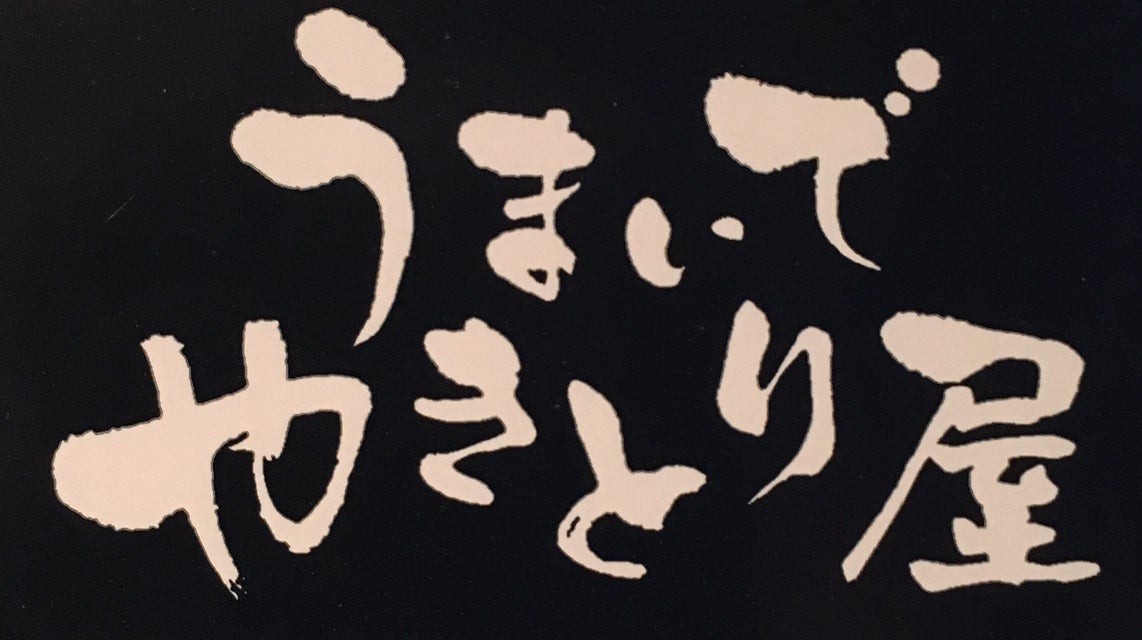 うまいで
やきとり屋